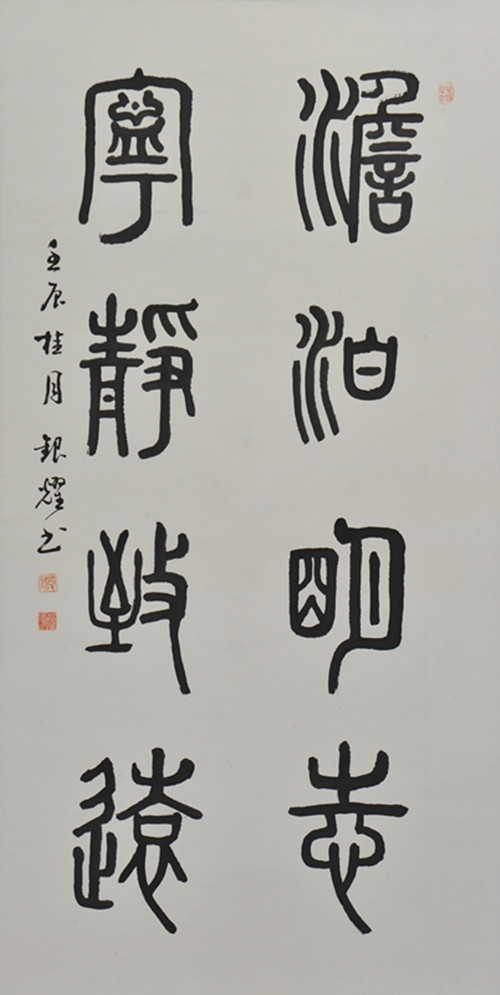 澹泊明志
寧靜致遠
壬辰桂月 銀耀书